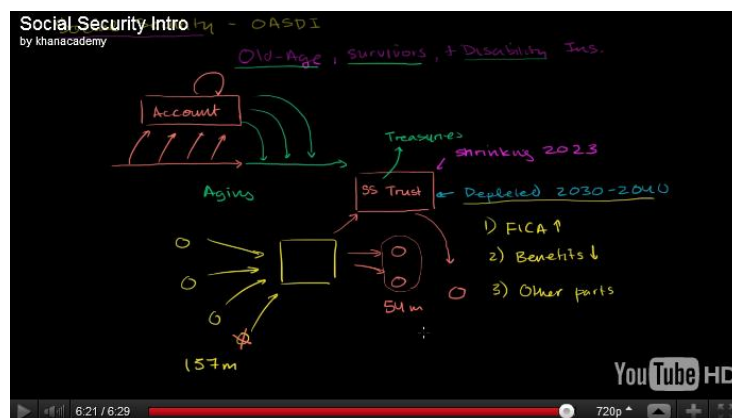 Social Security Intro
by khanacademy
- OASDI
Old-Age, Survivors, + Disability Ins.
Account
Treasuries
shrinking 2023
Aging
SS Trust
Depleted 2030-2040
1) FICA ↑
2) Benefits ↓
3) Other parts
54m
157m
YouTube HD
6:21 / 6:29
720p